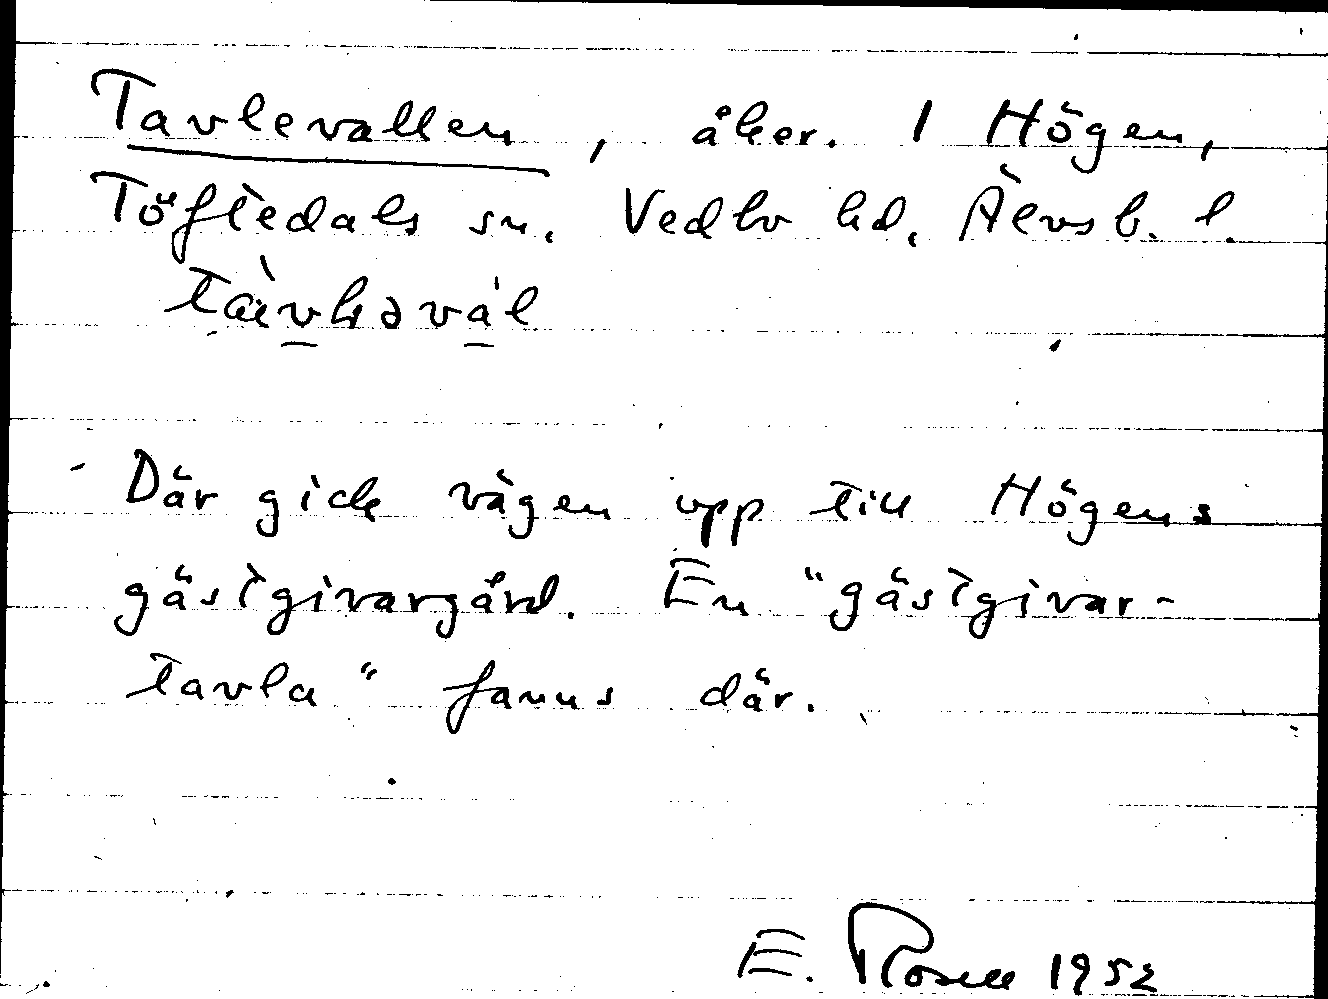 Tavlevallen, åker. 1 Högen,
Töftedals sn. Vedbo hd. Älvsb. l.
Där gick vägen upp till Högens
gästgivargård. En "gästgivar-
tavla" fanns där.
E. Rosell 1952